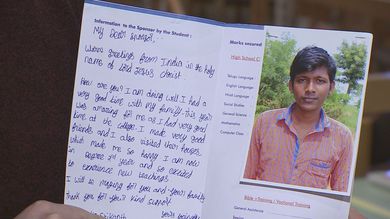 Information to the Sponsor by the Student :
My Dear sponsor,
Warm greetings from India in the holy
name of Lord Jesus christ.
How are you? I am doing well. I had a
very good time with my family. This year
was amazing for me as I had very good
time at the college. I made very good
friends and I also visited their houses
which made me so happy. I am now
in degree 2nd year and so excited
to experience new teachings
I will be praying for you and your family
Thank you for you'r kind support
Marks secured
High School Cl
Telugu Language
English Language
Hindi Language
Social Studies
General Science
mathematics
Computer Class
Bible - Training / Vocational Training
General Assistance